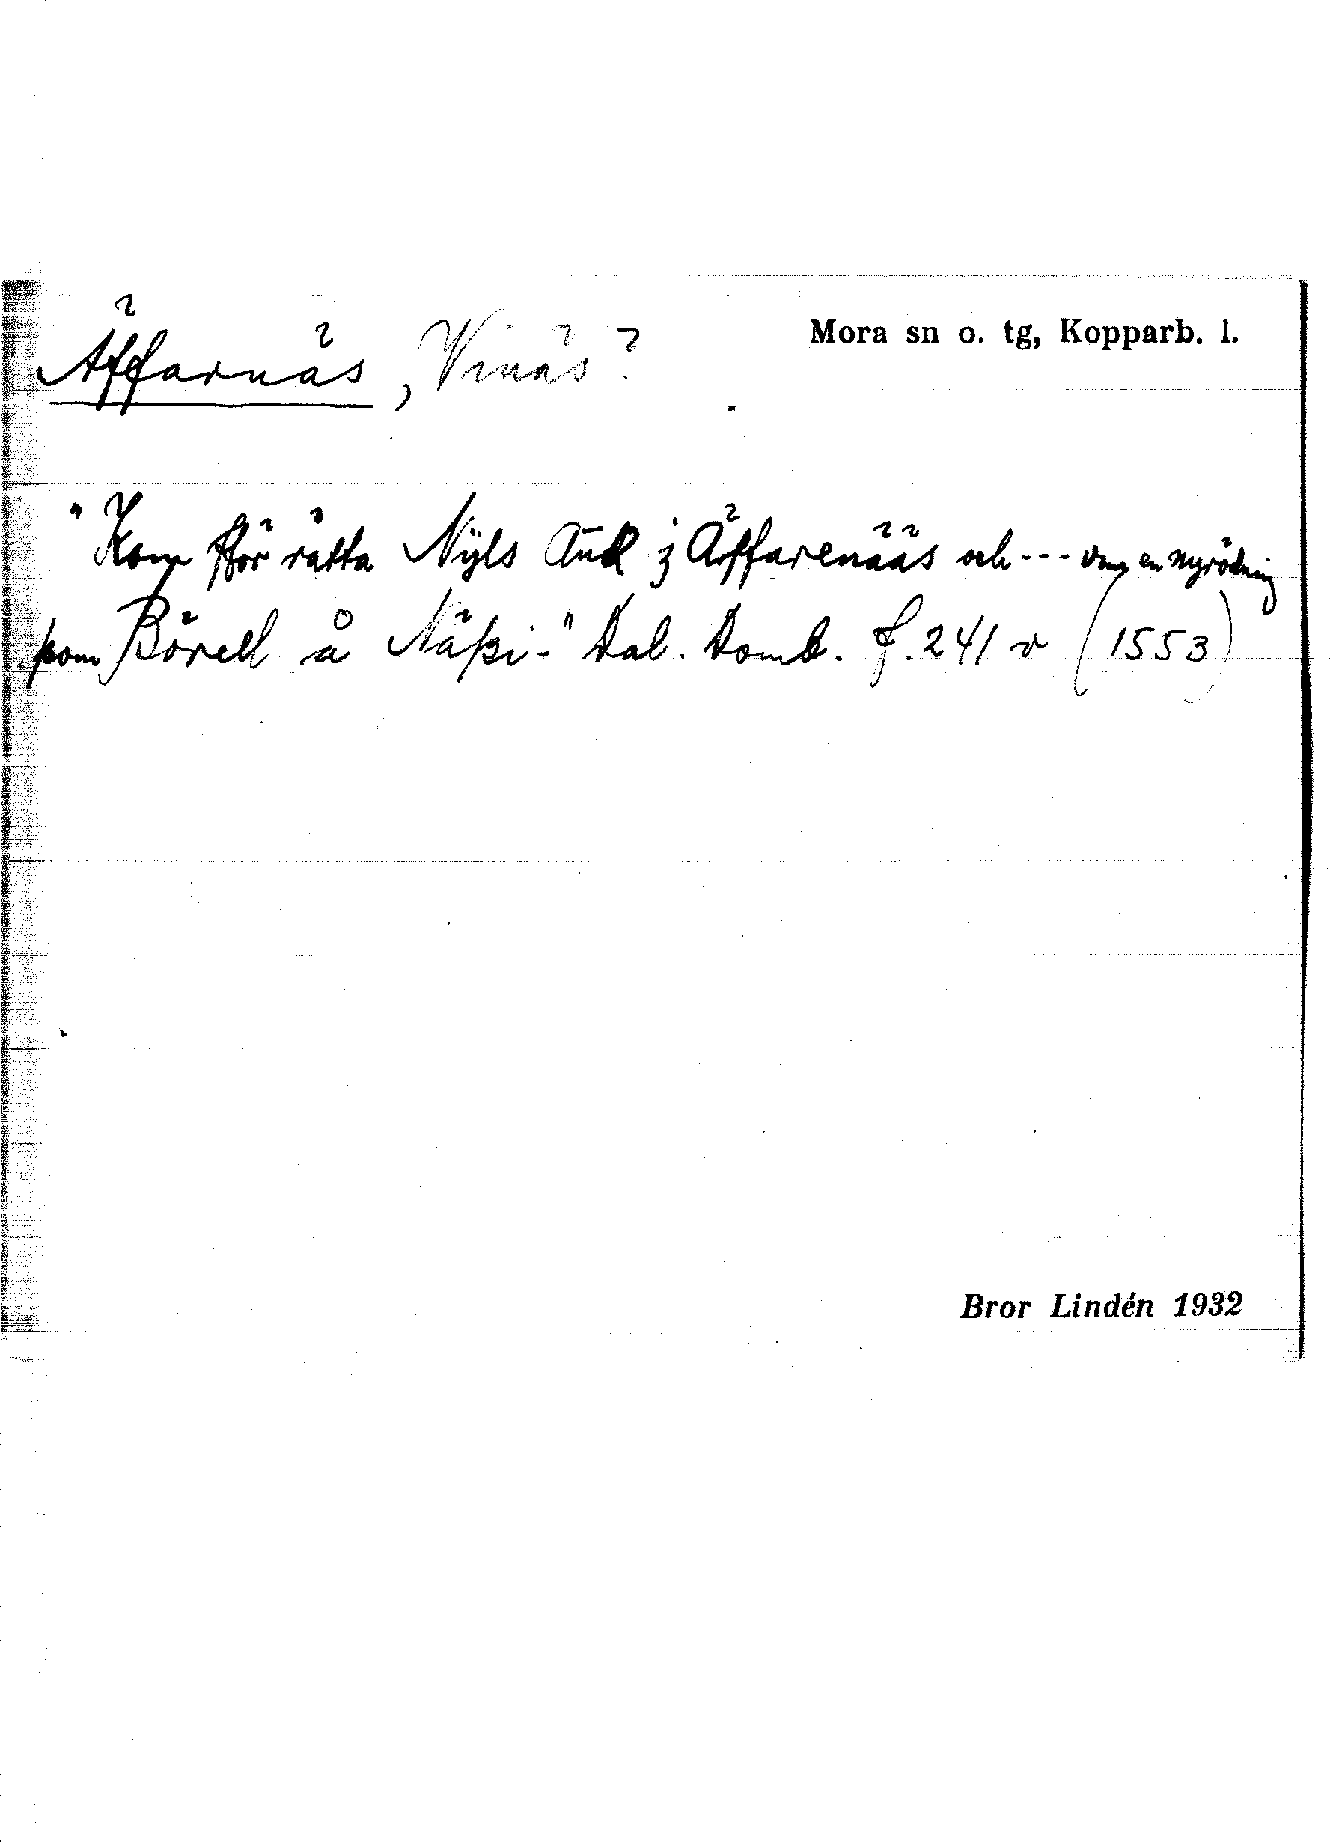 Äffarnäs, Vinäs?
Mora sn o. tg, Kopparb. l.
"Kom fför rätta Nyls And j Äffarenääs och --- vm en nyrödning
som Börell å Näsi-" Dal. Domb. f. 241 v (1553)
Bror Lindén 1932